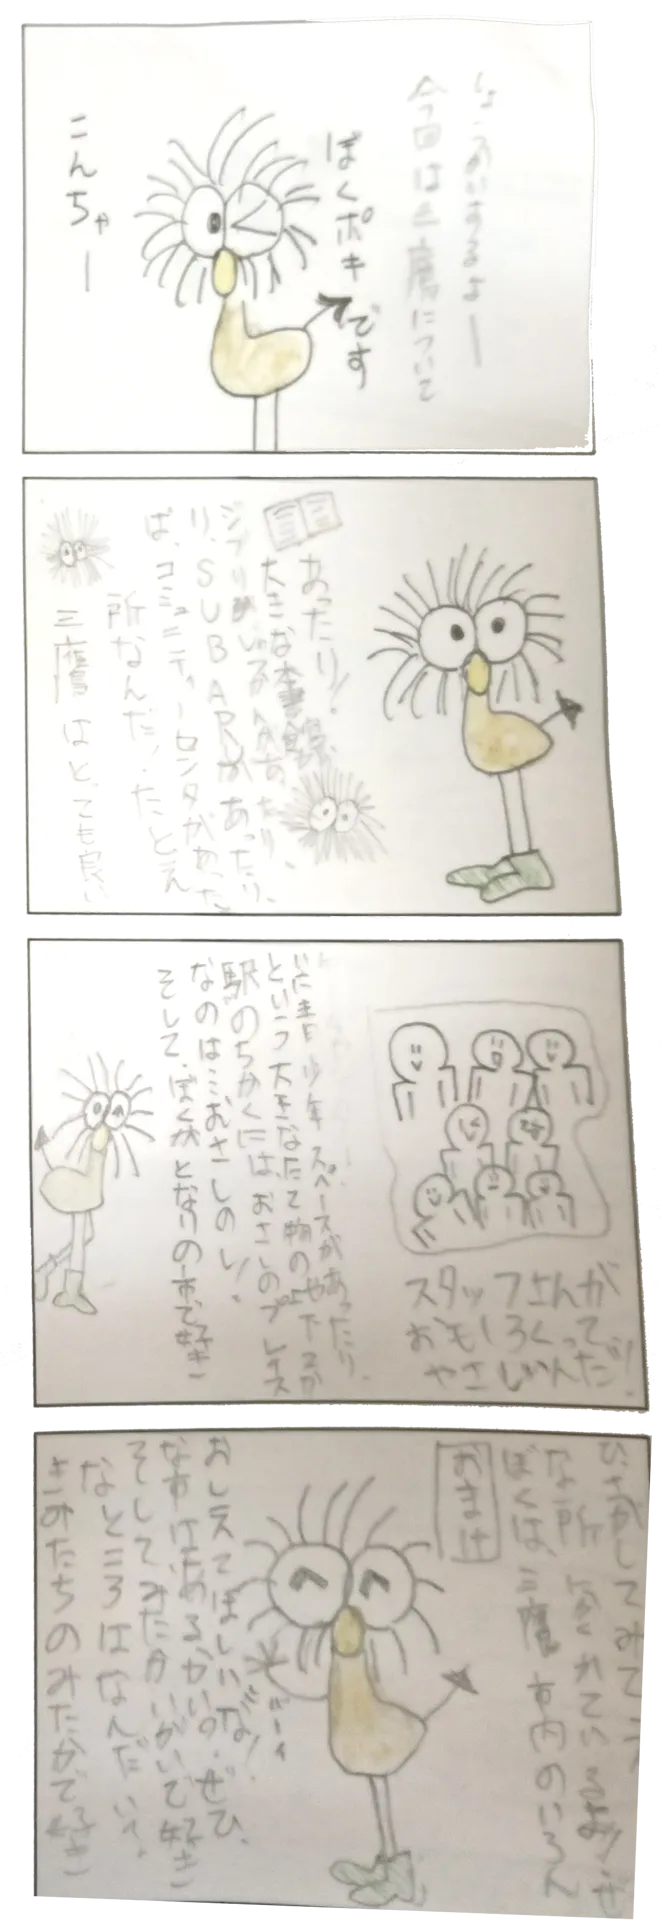 こんちゃー
ぼくポキです
今回は三鷹について
しょうかいするよー
三鷹はとっても良い
所なんだ!.たとえ
ば、コミュニティーセンタがあった
り、SUBARUがあったり、
ジブリがいかんがあったり、
大きな本書館
あったり!
そして、ぼくがとなりの市で好き
なのはこむさしのし!
駅のちかくには、むさしのプレイス
という大きなたて物の地下2か
いに青少年スペースがあったり、
スタッフさんが
おもしろくって
やさしいんだ!
きみたちのみたかで好き
なところはなんだい?
そしてみたかいがいで好き
な市はあるかい?.ぜひ、
おしえてほしいな!
バーイ
おまけ
ぼくは、三鷹市内のいろん
な所にかくれているよ!ぜ
ひさがしてみてね